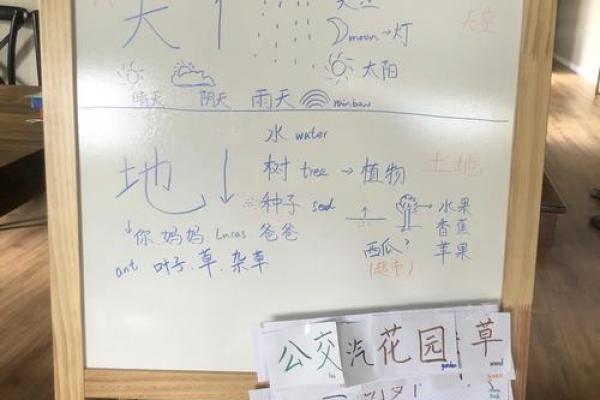 天
天空
moon → 灯
天空
太阳
晴天 阴天 雨天 rainbow
水 water
地 树 tree → 植物 土地
种子 seed → 水果
香蕉
苹果
↓你.妈妈.Lucas.爸爸
西瓜?
(超市)
ant 叶子.草.杂草
公交汽花园草
garden
weed